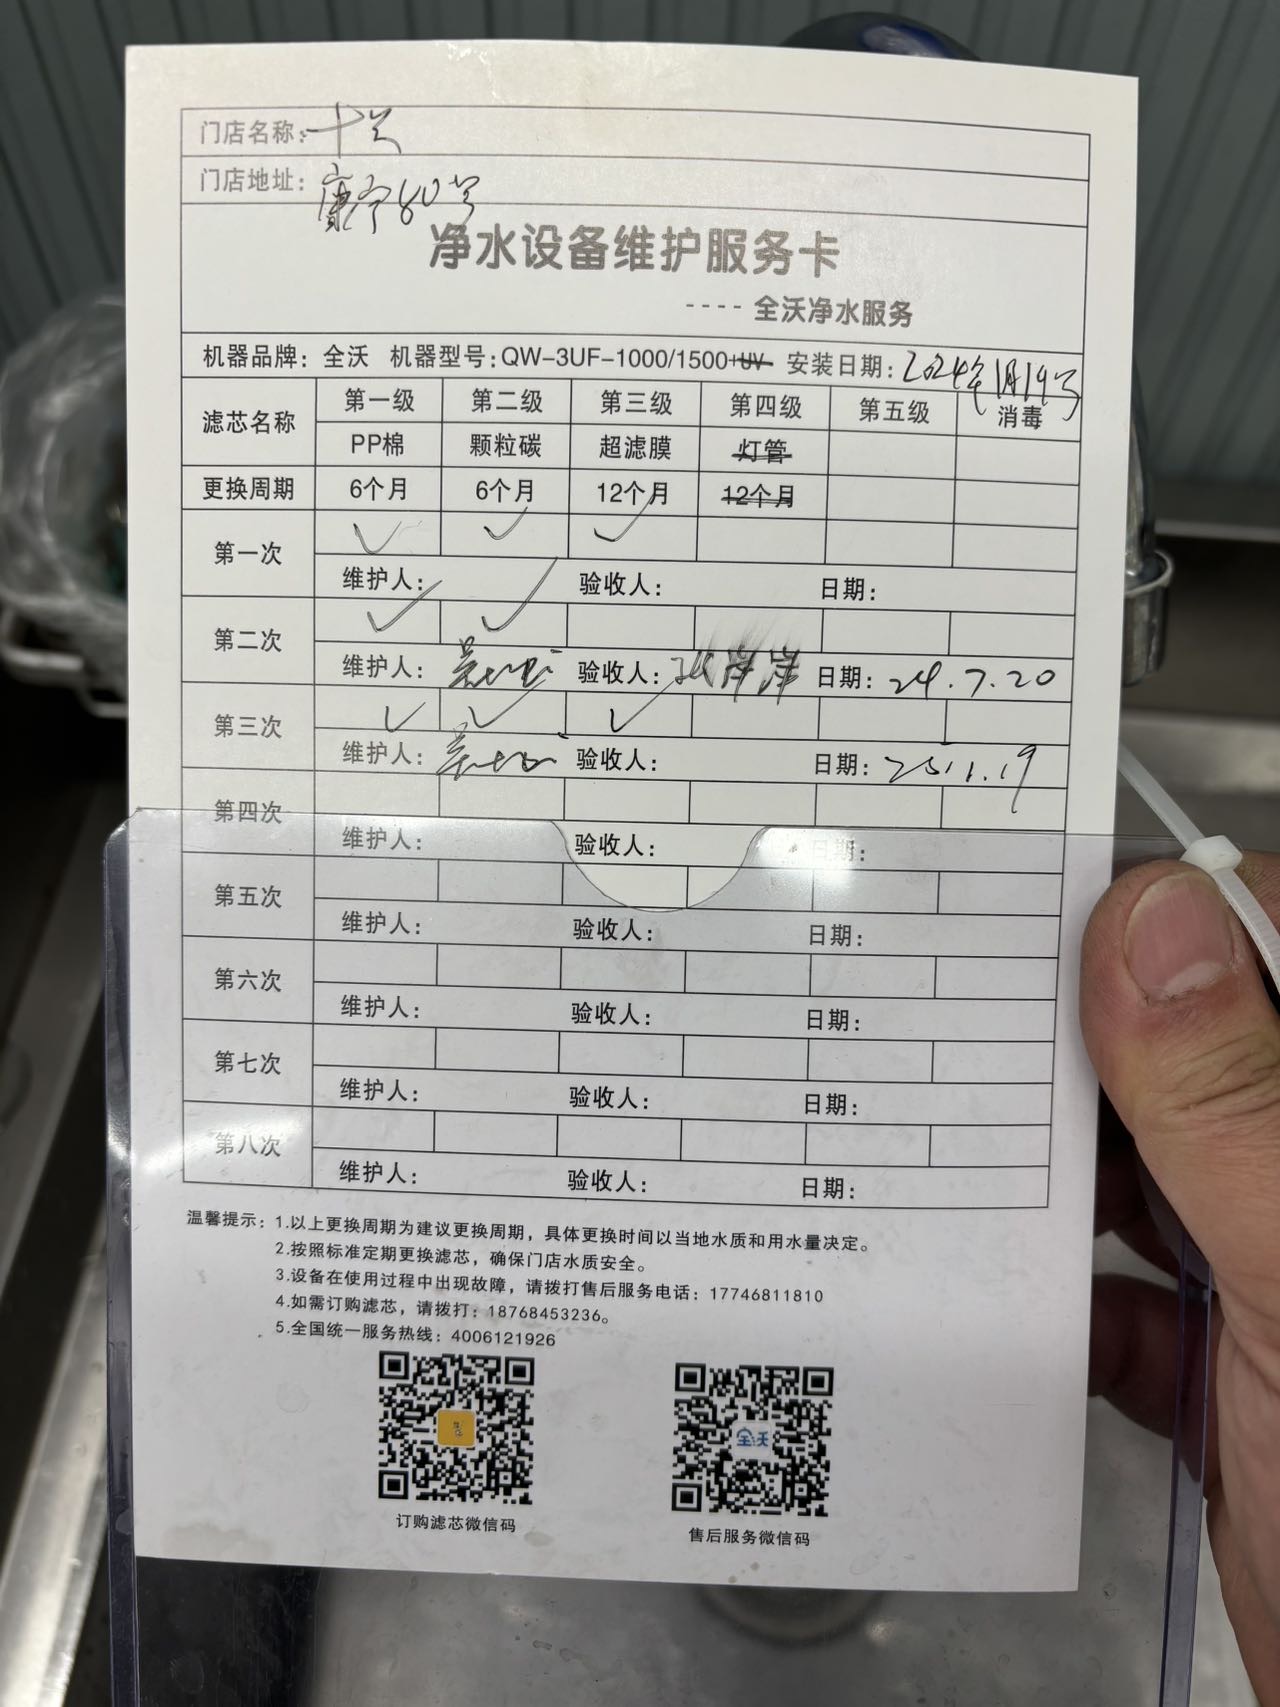 门店名称：
门店地址：康宁80号
净水设备维护服务卡
---- 全沃净水服务
机器品牌：全沃 机器型号：QW-3UF-1000/1500+UV 安装日期：2024年1月19号
滤芯名称 第一级 第二级 第三级 第四级 第五级 消毒
PP棉 颗粒碳 超滤膜 灯管
更换周期 6个月 6个月 12个月 12个月
第一次 ✓ ✓ ✓
维护人： 验收人： 日期：
第二次 ✓ ✓
维护人： 验收人： 日期：24.7.20
第三次 ✓ ✓ ✓
维护人： 验收人： 日期：25.1.19
第四次
维护人： 验收人： 日期：
第五次
维护人： 验收人： 日期：
第六次
维护人： 验收人： 日期：
第七次
维护人： 验收人： 日期：
第八次
维护人： 验收人： 日期：
温馨提示：1.以上更换周期为建议更换周期，具体更换时间以当地水质和用水量决定。
2.按照标准定期更换滤芯，确保门店水质安全。
3.设备在使用过程中出现故障，请拨打售后服务电话：17746811810
4.如需订购滤芯，请拨打：18768453236。
5.全国统一服务热线：4006121926
全沃
订购滤芯微信码 售后服务微信码